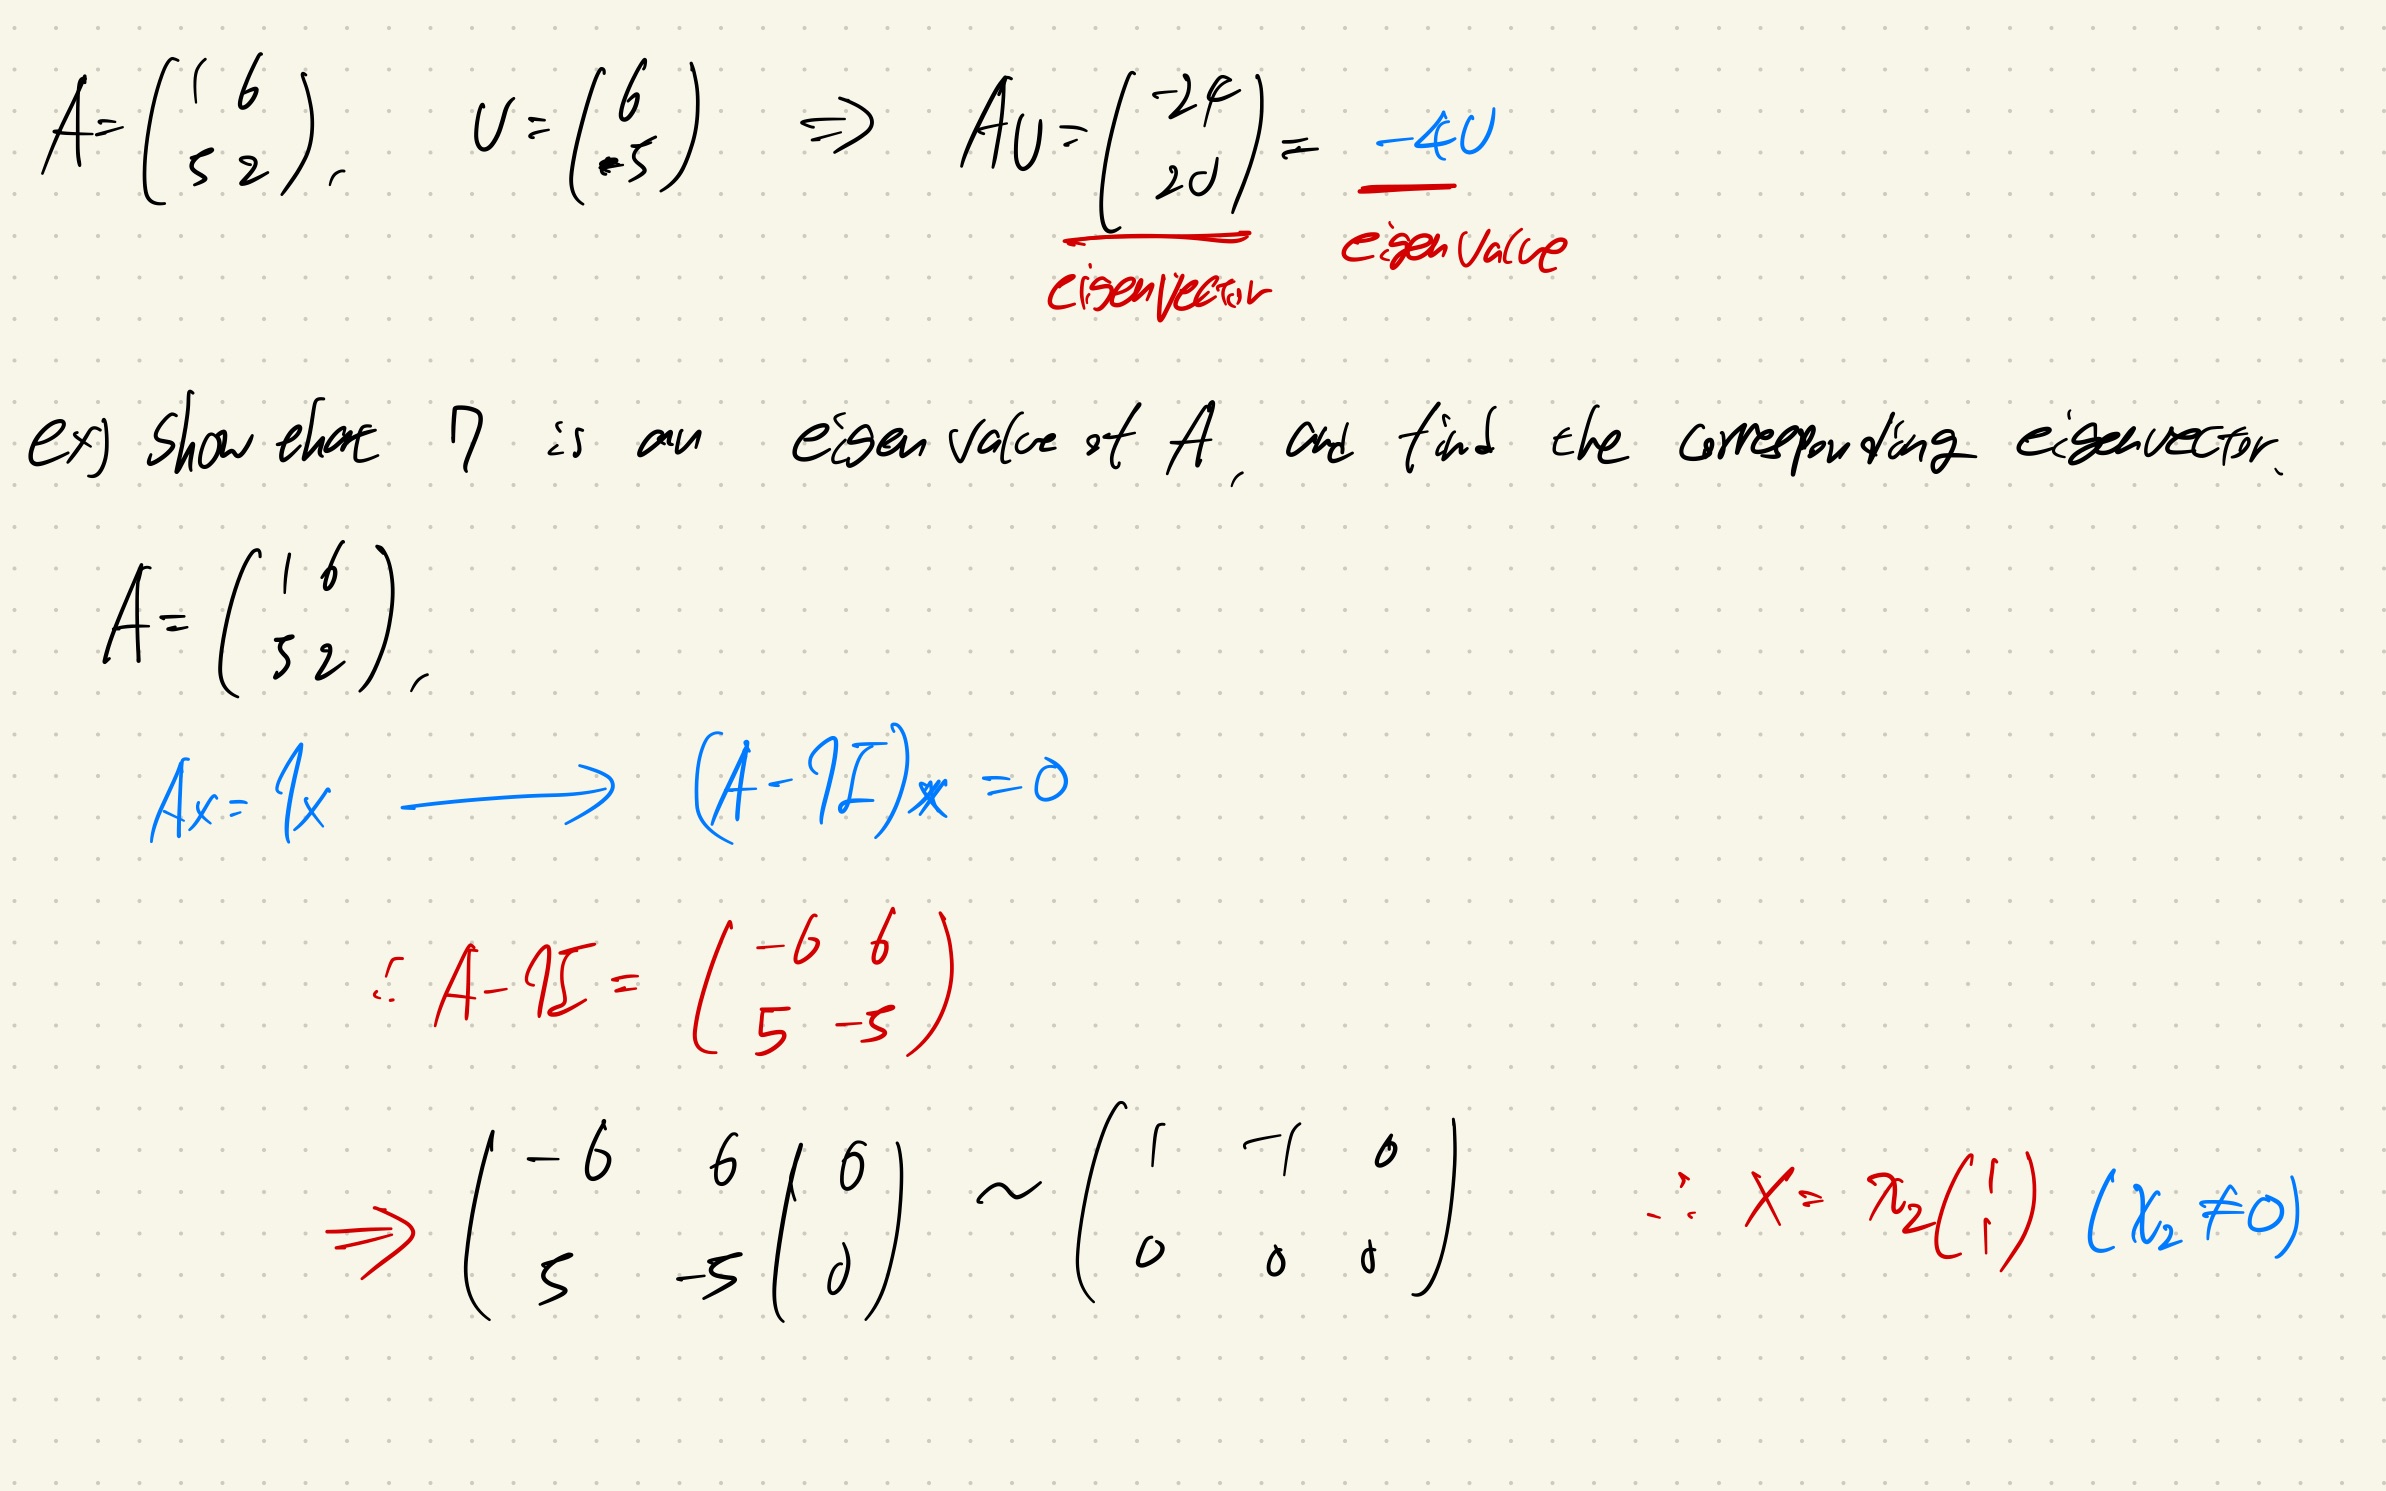 A = ( 1 6 ; 5 2 ), U = ( 6 ; -5 ) ⇒ AU = ( -24 ; 20 ) = -4U
eigenvector eigenvalue
ex) Show that 7 is an eigenvalue of A, and find the corresponding eigenvector.
A = ( 1 6 ; 5 2 ),
Ax = 7x → (A - 7I)x = 0
∴ A - 7I = ( -6 6 ; 5 -5 )
⇒ ( -6 6 | 0 ; 5 -5 | 0 ) ~ ( 1 -1 0 ; 0 0 0 ) ∴ X = x₂ ( 1 ; 1 ) (x₂ ≠ 0)